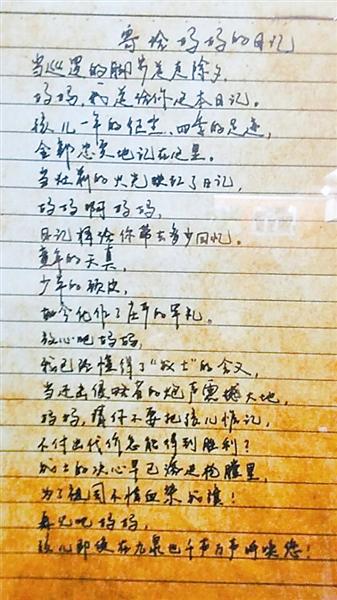 寄给妈妈的日记
当巡逻的脚步走进除夕,
妈妈,我送给你这本日记。
孩儿一年的纪念、四季的足迹,
全部忠实地记在这里。
当的火光映红了日记,
妈妈啊妈妈,
日记将给你带去多少回忆。
童年的天真,
少年的顽皮,
如今化作了庄严的军礼。
放心吧妈妈,
我已经懂得了“战士”的含义,
当还击侵略者的炮声震撼大地,
妈妈,请你不要把孩儿惦记,
不付出代价怎能得到胜利?
战士的决心早已溶进枪膛里,
为了祖国不惜血染的旗!
再见吧妈妈,
孩儿即使在九泉也千声百声呼唤您!